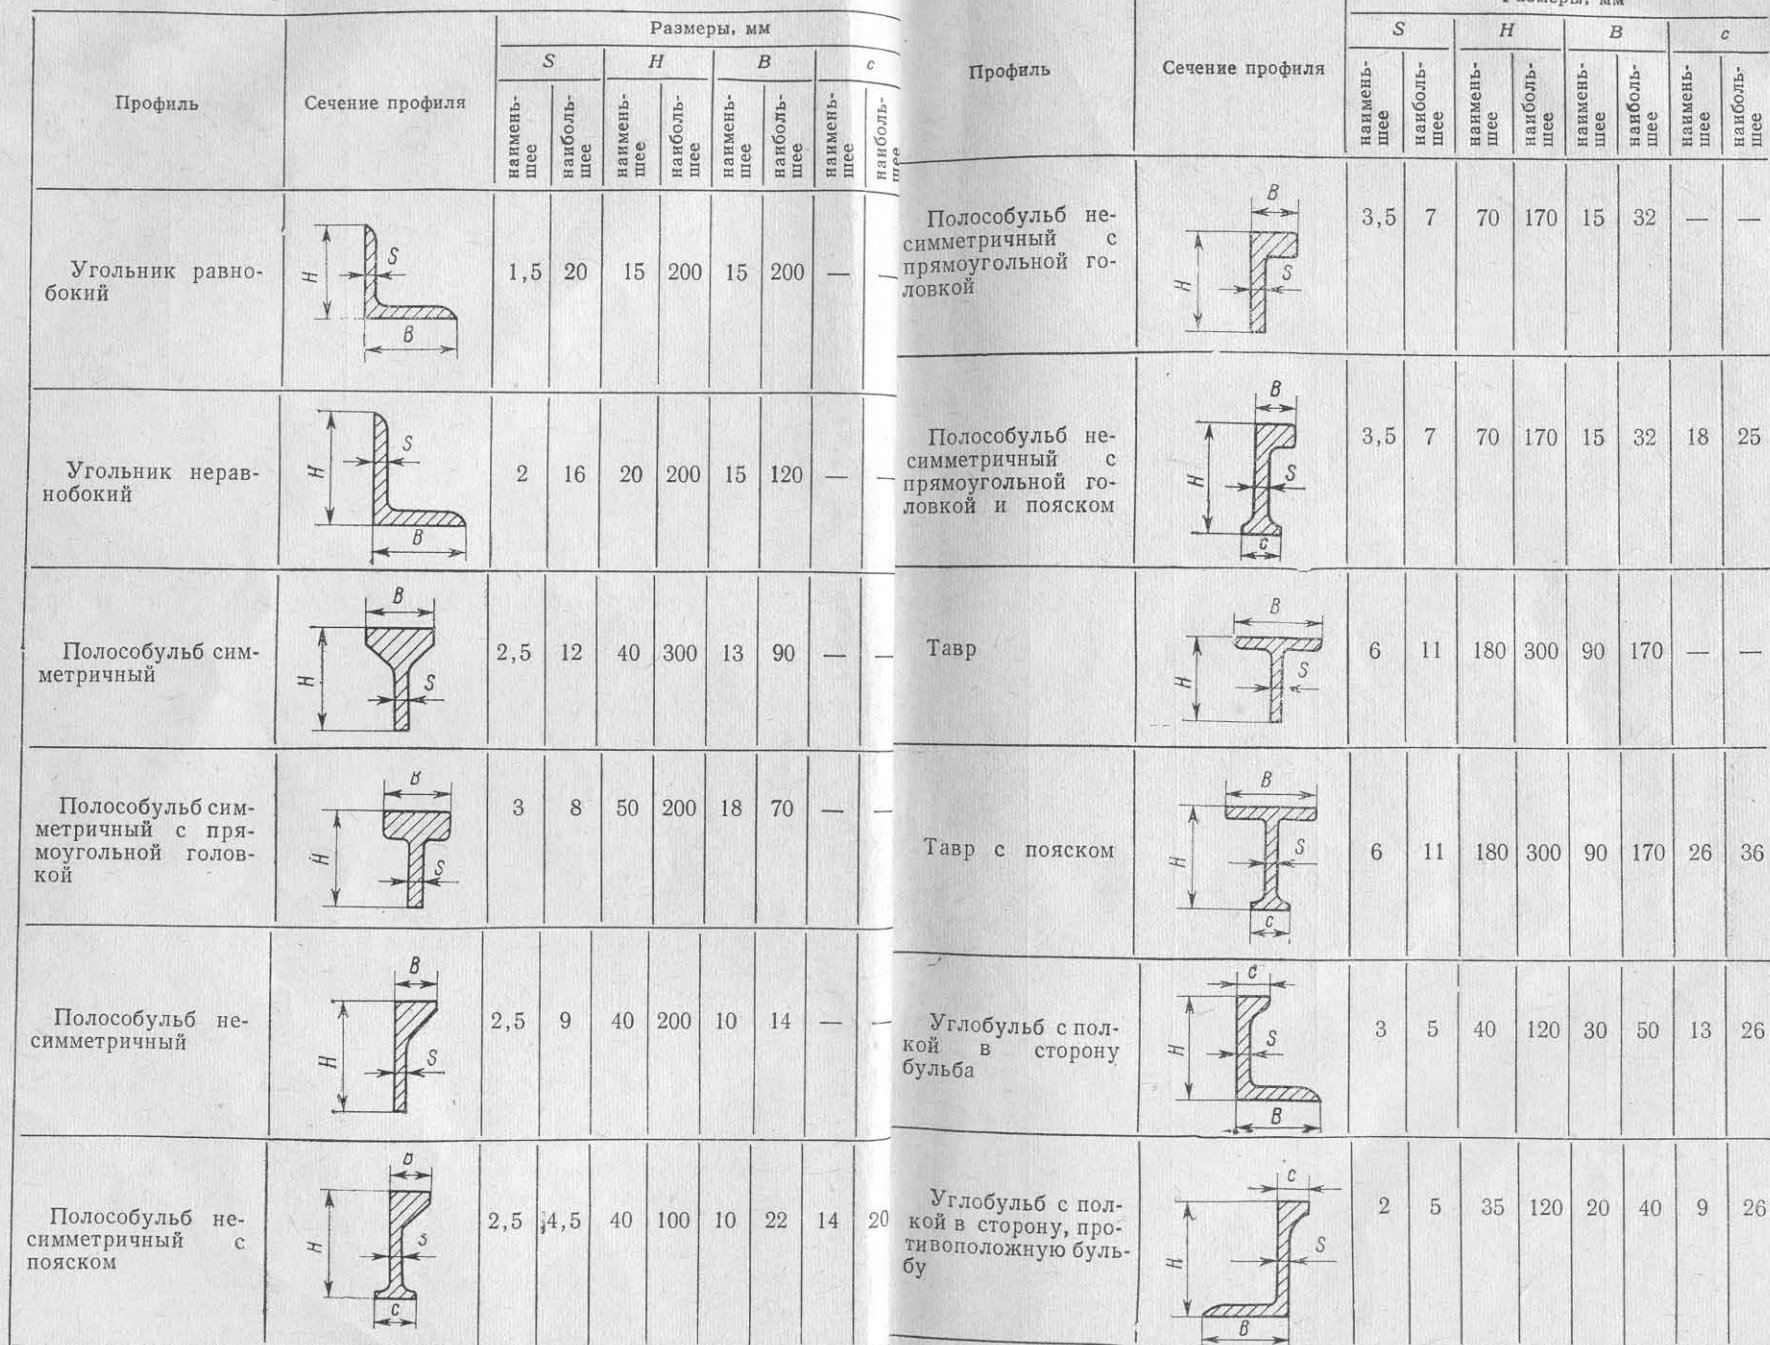 Размеры, мм
Профиль
Сечение профиля
S
H
B
c
наимень-
шее
наиболь-
шее
наимень-
шее
наиболь-
шее
наимень-
шее
наиболь-
шее
наимень-
шее
наиболь-
шее
Угольник равно-
бокий
H
S
B
1,5 20 15 200 15 200 — —
Угольник нерав-
нобокий
H
S
B
2 16 20 200 15 120 — —
Полособульб сим-
метричный
B
H
S
2,5 12 40 300 13 90 — —
Полособульб сим-
метричный с пря-
моугольной голов-
кой
B
H
S
3 8 50 200 18 70 — —
Полособульб не-
симметричный
B
H
S
2,5 9 40 200 10 14 — —
Полособульб не-
симметричный с
пояском
B
H
S
c
2,5 4,5 40 100 10 22 14 20
Размеры, мм
Профиль
Сечение профиля
S
H
B
c
наимень-
шее
наиболь-
шее
наимень-
шее
наиболь-
шее
наимень-
шее
наиболь-
шее
наимень-
шее
наиболь-
шее
Полособульб не-
симметричный с
прямоугольной го-
ловкой
B
H
S
3,5 7 70 170 15 32 — —
Полособульб не-
симметричный с
прямоугольной го-
ловкой и пояском
B
H
S
c
3,5 7 70 170 15 32 18 25
Тавр
B
H
S
6 11 180 300 90 170 — —
Тавр с пояском
B
H
S
c
6 11 180 300 90 170 26 36
Углобульб с пол-
кой в сторону
бульба
c
H
S
B
3 5 40 120 30 50 13 26
Углобульб с пол-
кой в сторону, про-
тивоположную буль-
бу
c
H
S
B
2 5 35 120 20 40 9 26